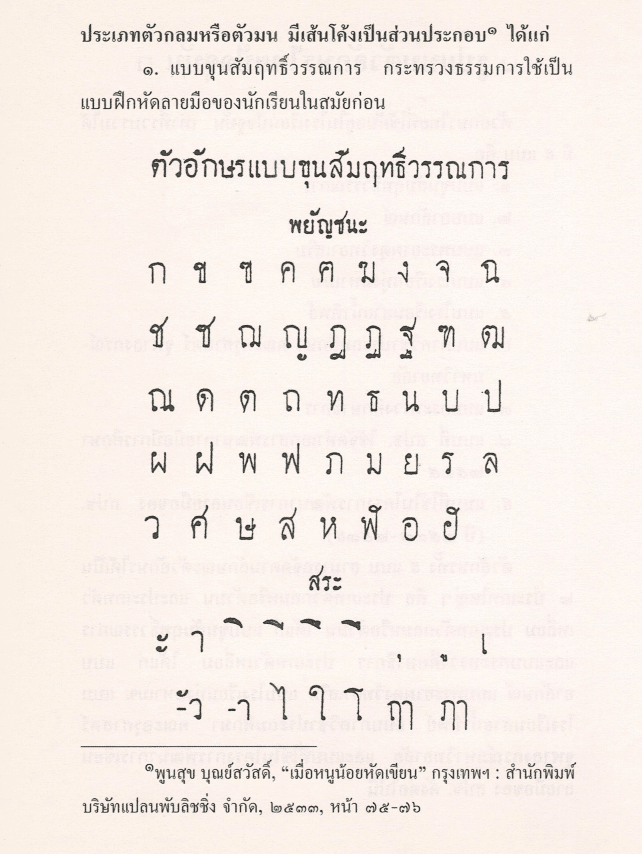 ประเภทตัวกลมหรือตัวมน มีเส้นโค้งเป็นส่วนประกอบ๑ ได้แก่
๑. แบบขุนสัมฤทธิ์วรรณการ กระทรวงธรรมการใช้เป็น
แบบฝึกหัดลายมือของนักเรียนในสมัยก่อน
ตัวอักษรแบบขุนสัมฤทธิ์วรรณการ
พยัญชนะ
ก ข ฃ ค ฅ ฆ ง จ ฉ
ช ซ ฌ ญ ฎ ฏ ฐ ฑ ฒ
ณ ด ต ถ ท ธ น บ ป
ผ ฝ พ ฟ ภ ม ย ร ล
ว ศ ษ ส ห ฬ อ ฮ
สระ
ะ า ิ ี ึ ื ุ ู เ
-ัว -า ไ ใ โ ฤๅ ฦๅ
๑พูนสุข บุณย์สวัสดิ์, “เมื่อหนูน้อยหัดเขียน” กรุงเทพฯ : สำนักพิมพ์
บริษัทแปลนพับลิชชิ่ง จำกัด, ๒๕๓๓, หน้า ๗๕-๗๖